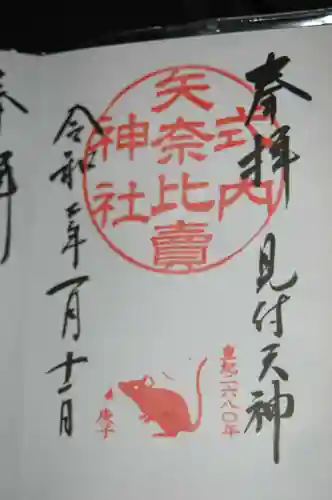 奉拝 見付天神
式内
矢奈比賣
神社
皇紀二六八〇年
庚子
令和二年一月十二日
奉拝